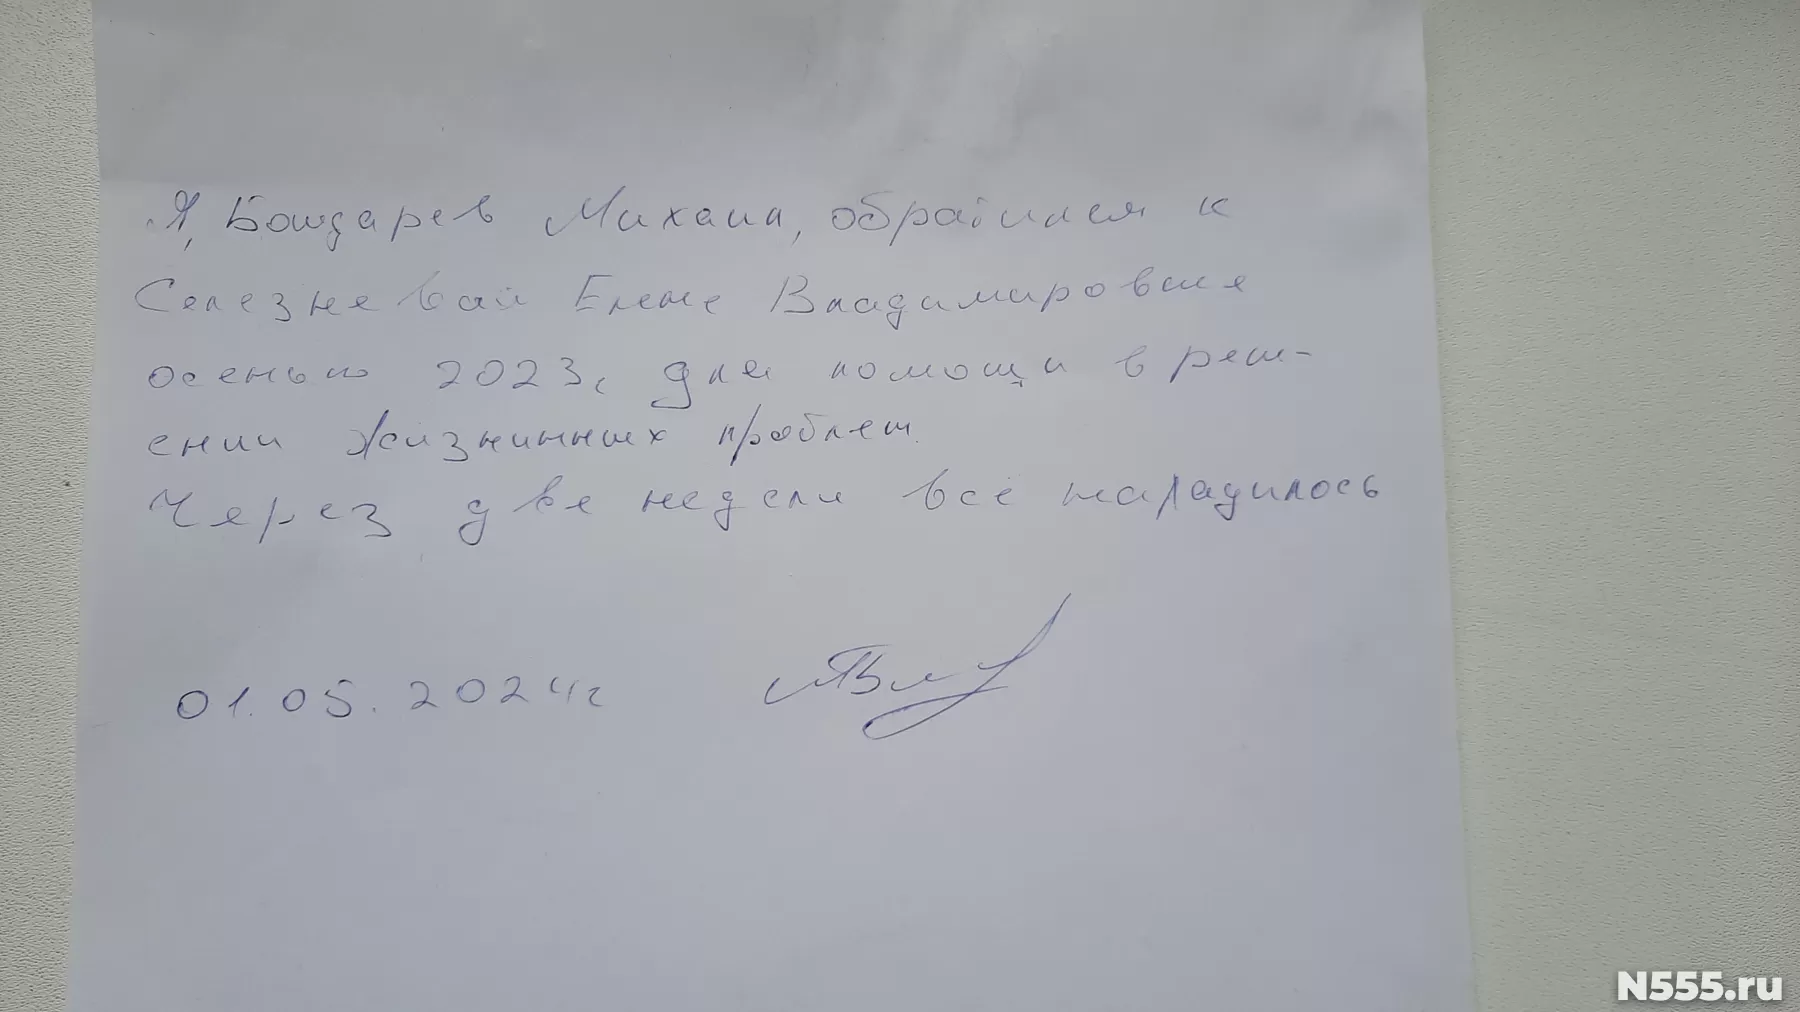 Я, Бондарев Михаил, обратился к
Селезневой Елене Владимировне
осенью 2023г для помощи в реш-
ении жизнинных проблем.
Через две недели всё наладилось
01.05.2024г
N555.ru